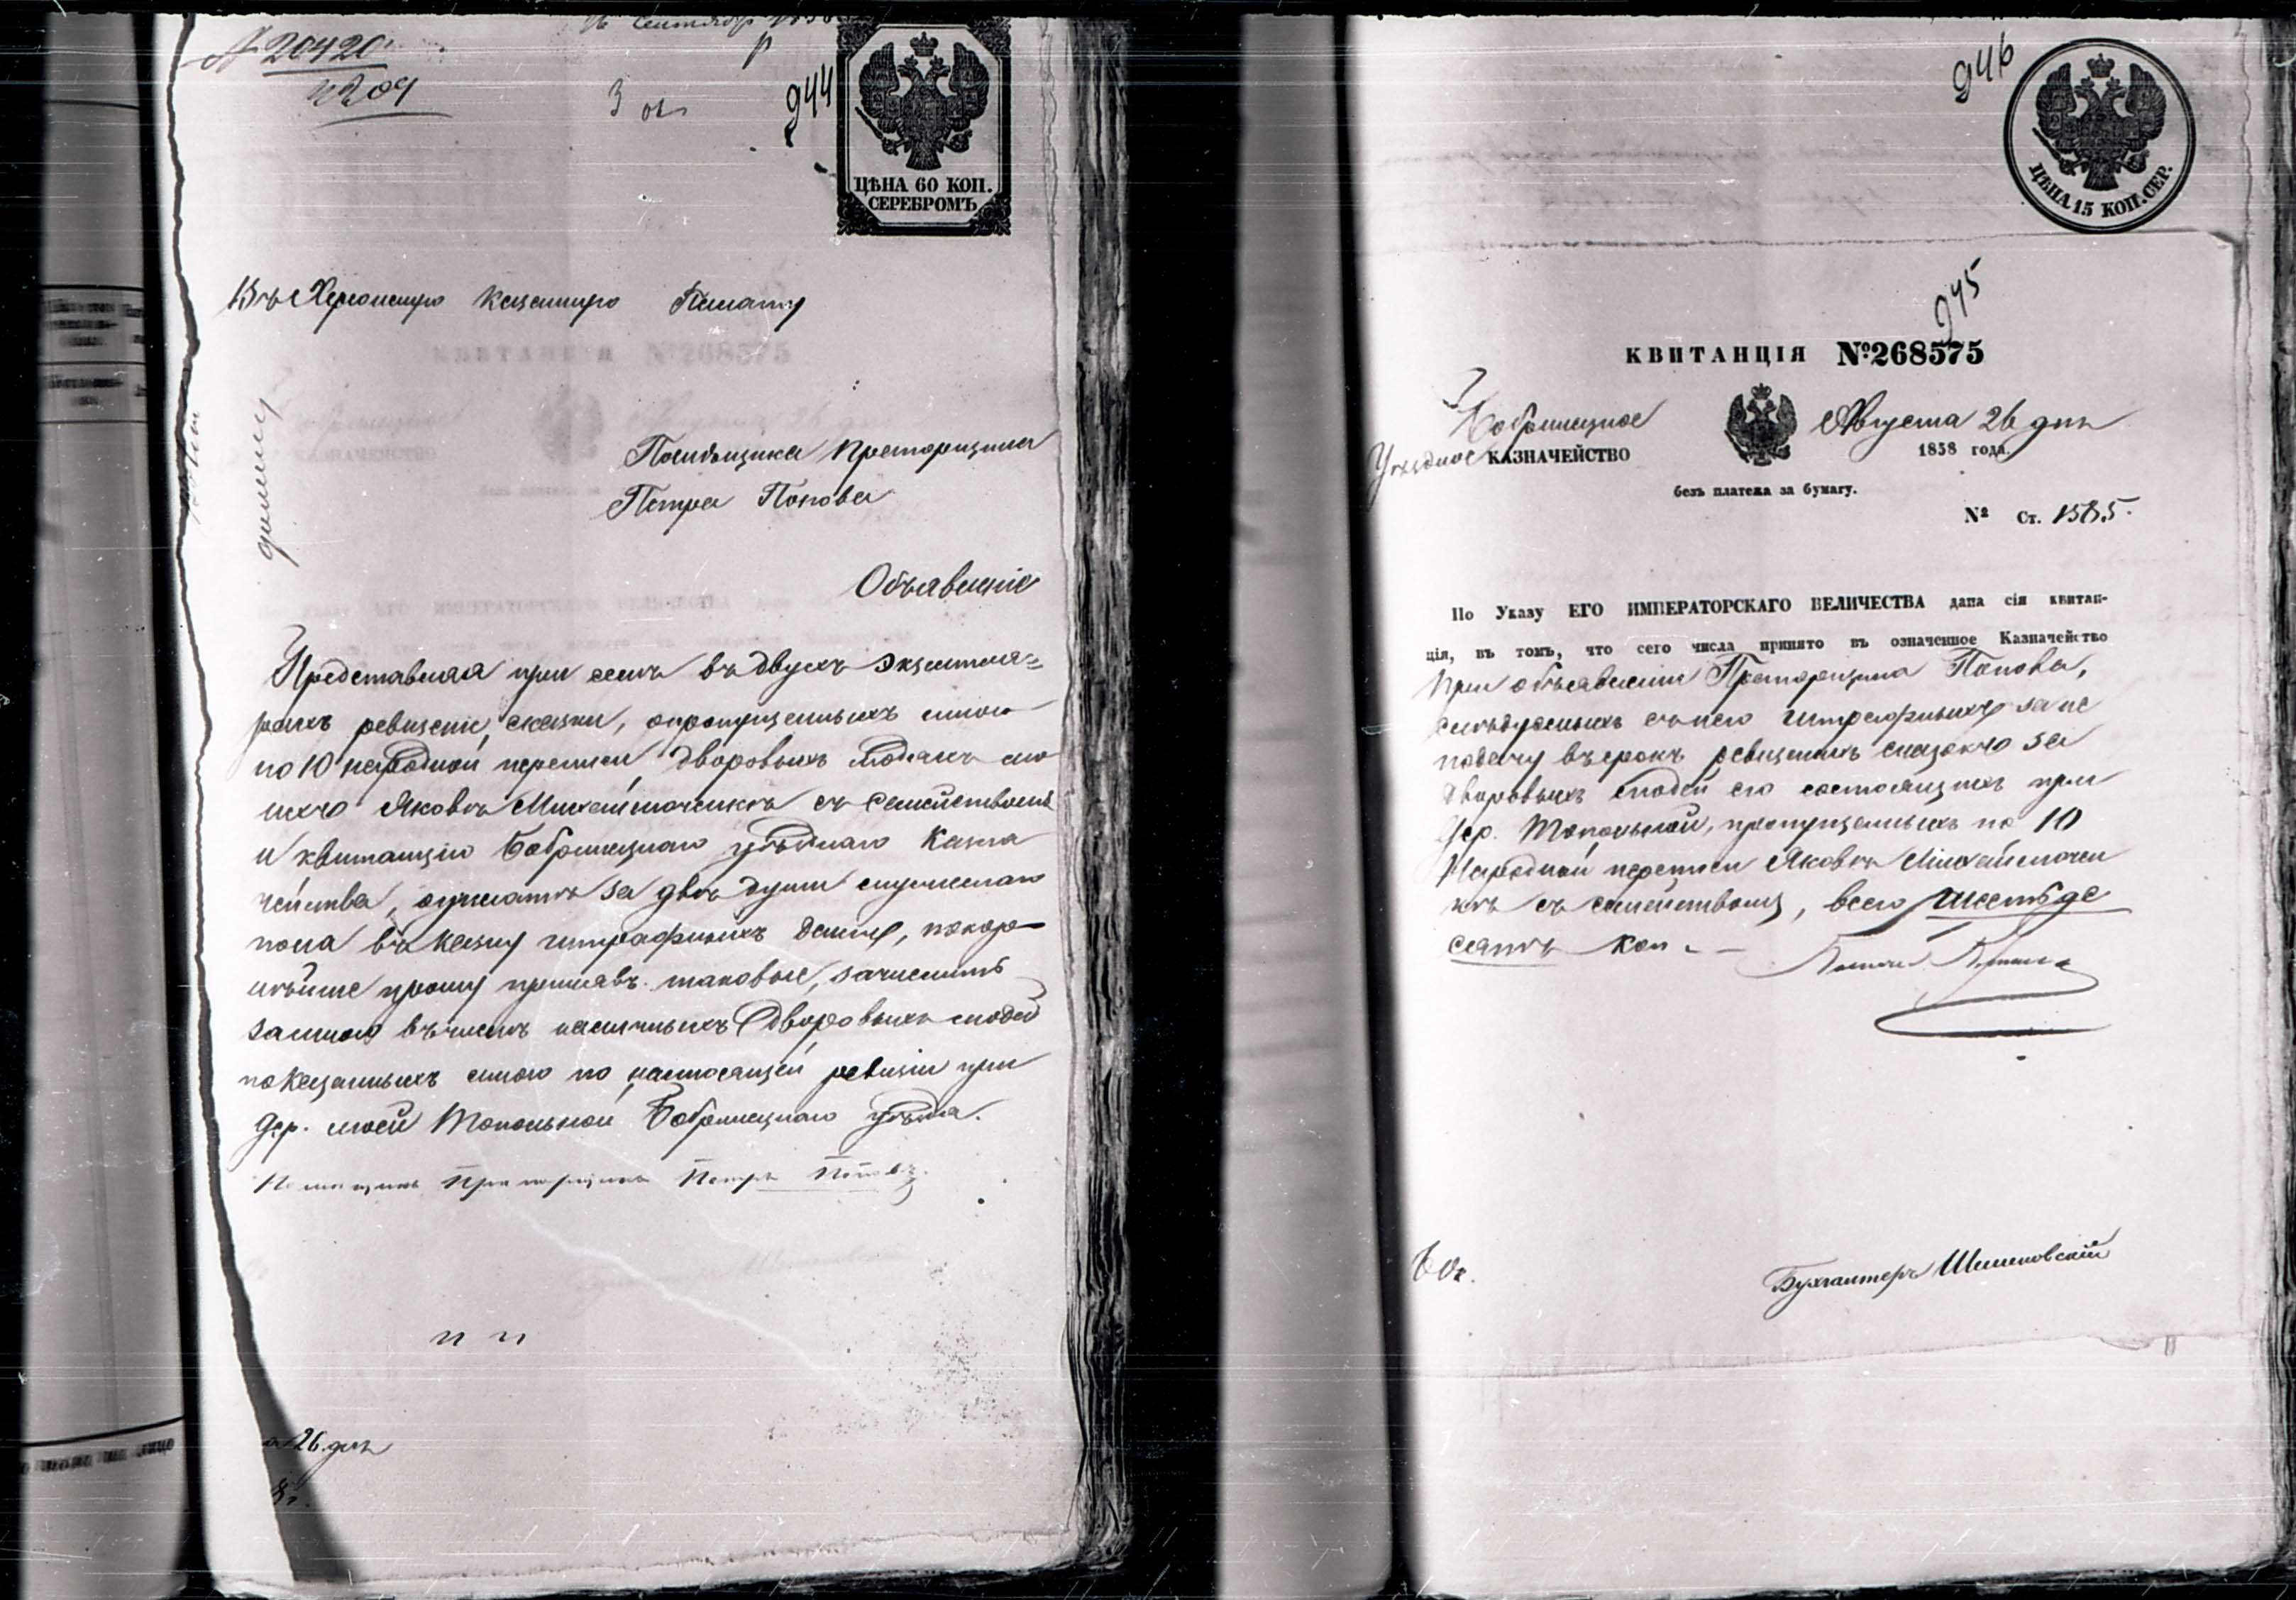 № 20420
1209
16 Сентябр 1858
944
ЦѢНА 60 КОП.
СЕРЕБРОМЪ
Въ Херсонскую Казенную Палату
Помѣщика Прапорщика
Петра Попова
Объявленіе
Представляя при семъ въ двухъ экземпля=
рахъ ревизск. сказки, о пропущенныхъ мною
по 10 народной переписи дворовыхъ людяхъ мо
ихъ Яковѣ Михайличенкѣ съ семействомъ
и квитанцію Бобринецкаго уѣзднаго Казна
чейства, о уплатѣ за двѣ души мужескаго
пола въ казну штрафныхъ денегъ, покор
нѣйше прошу принявъ таковые, зачислить
за мною въ число наличныхъ дворовыхъ людей
показанныхъ мною по настоящей ревизіи при
дер. моей Топольной Бобринецкаго уѣзда.
Помѣщикъ Прапорщикъ Петръ Поповъ
26 дня
946
ЦѢНА 15 КОП. СЕР.
945
КВИТАНЦІЯ №268575
Бобринецкое Августа 26 дня
Уѣздное КАЗНАЧЕЙСТВО 1858 года.
безъ платежа за бумагу.
№ Ст. 1585.
По Указу ЕГО ИМПЕРАТОРСКАГО ВЕЛИЧЕСТВА дана сія квитан-
ція, въ томъ, что сего числа принято въ означенное Казначейство
При объявленіи Прапорщика Попова,
слѣдуемыхъ съ него штрафныхъ за не
подачу въ срокъ ревизскихъ сказокъ за
дворовыхъ людей его состоящихъ при
дер. Топольной, пропущенныхъ по 10
Народной переписи Яковѣ Михайличен
кѣ съ семействомъ, всего шестьде
сятъ коп.
60 к.
Бухгалтеръ Шишковскій